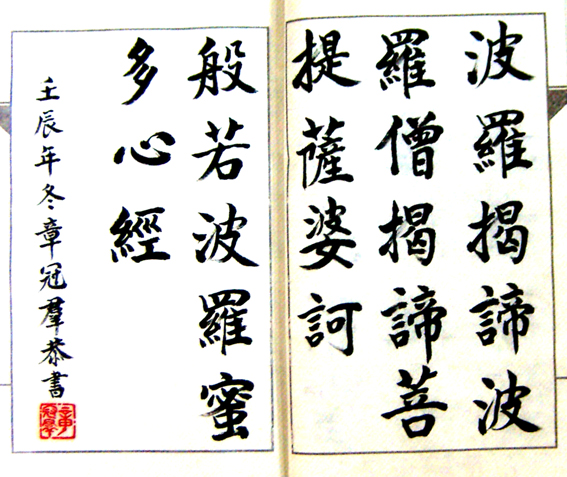 波羅揭諦波
羅僧揭諦菩
提薩婆訶
般若波羅蜜
多心經
壬辰年冬章冠羣恭書